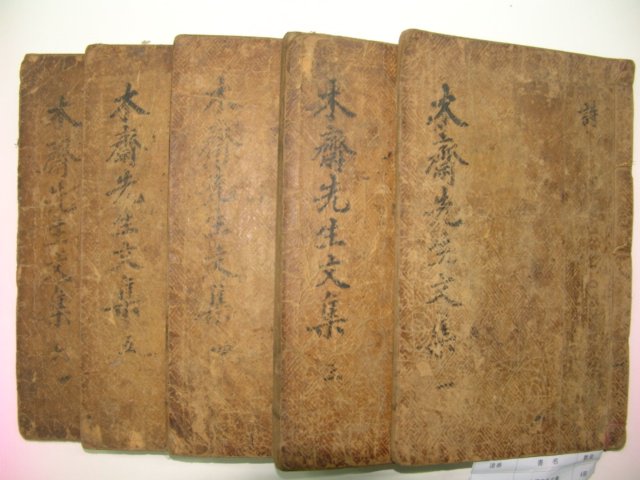 詩
木齋先生文集 一
木齋先生文集 三
木齋先生文集 四
木齋先生文集 五
木齋先生文集 六
書名